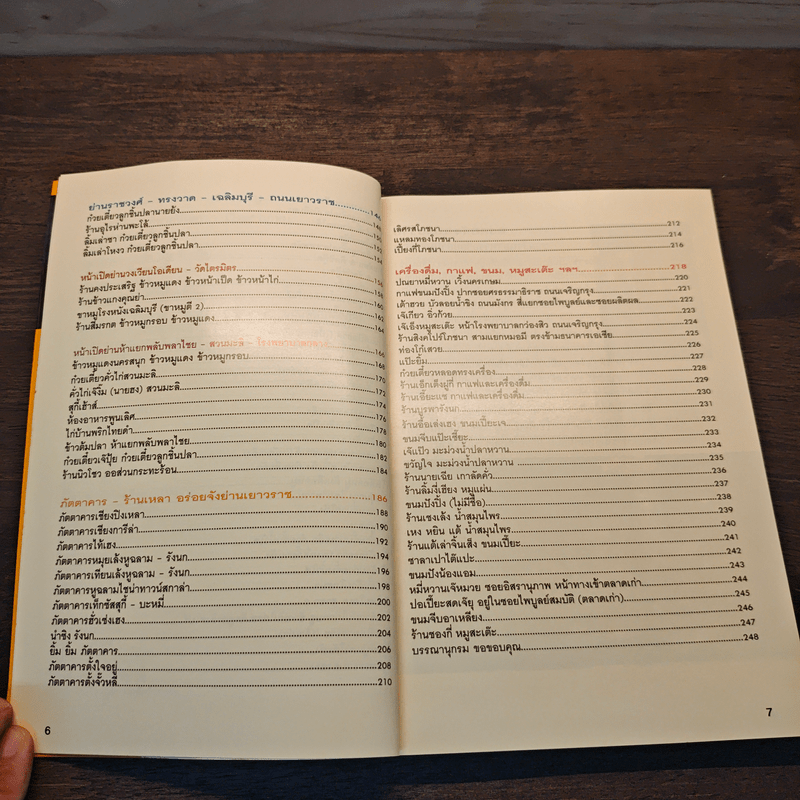 ย่านราชวงศ์ - ทรงวาด - เฉลิมบุรี - ถนนเยาวราช
ก๋วยเตี๋ยวลูกชิ้นปลานายย้ง
ร้านอุไรห่านพะโล้
ลิ้มเล่าซา ก๋วยเตี๋ยวลูกชิ้นปลา
ลิ้มเล่าโหงว ก๋วยเตี๋ยวลูกชิ้นปลา
หน้าเปิดย่านวงเวียนโอเดียน - วัดไตรมิตร
ร้านคงประเสริฐ ข้าวหมูแดง ข้าวหน้าเป็ด ข้าวหน้าไก่
ร้านข้าวแกงคุณย่า
ขาหมูโรงหนังเฉลิมบุรี (ขาหมูตี๋ 2)
ร้านสีมรกต ข้าวหมูกรอบ ข้าวหมูแดง
หน้าเปิดย่านห้าแยกพลับพลาไชย - สวนมะลิ - โรงพยาบาลกลาง
ข้าวหมูแดงนครสนุก ข้าวหมูแดง ข้าวหมูกรอบ 168
ก๋วยเตี๋ยวคั่วไก่สวนมะลิ 170
คั่วไก่เจ๊งิ้ม (นายฮง) สวนมะลิ 172
สุกี้เฮ้าส์ 174
ห้องอาหารพูนเลิศ 176
ไก่บ้านพริกไทยดำ 178
ข้าวต้มปลา ห้าแยกพลับพลาไชย 180
ก๋วยเตี๋ยวเจ๊ปุ้ย ก๋วยเตี๋ยวลูกชิ้นปลา 182
ร้านนิวโชว ออส่วนกระทะร้อน 184
ภัตตาคาร - ร้านเหลา อร่อยจังย่านเยาวราช 186
ภัตตาคารเซี้ยงปิงเหลา 188
ภัตตาคารเชียงการีล่า 190
ภัตตาคารไท้เฮง 192
ภัตตาคารหมุยเล้งหูฉลาม - รังนก 194
ภัตตาคารเทียนเล้งหูฉลาม - รังนก 196
ภัตตาคารหูฉลามไชน่าทาวน์สกาล่า 198
ภัตตาคารเท็กซัสสุกี้ - บะหมี่ 200
ภัตตาคารฮั่วเซ่งเฮง 202
น่ำชิง รังนก 204
ยิ้ม ยิ้ม ภัตตาคาร 206
ภัตตาคารตั้งใจอยู่ 208
ภัตตาคารตั้งจั๊วหลี 210
6
เลิศรสโภชนา 212
แหลมทองโภชนา 214
เบี้ยงกี่โภชนา 216
เครื่องดื่ม, กาแฟ, ขนม, หมูสะเต๊ะ ฯลฯ 218
ปณยาหมี่หวาน เวิ้งนครเกษม 220
กาแฟขนมปังปิ้ง ปากซอยศรธรรมาธิราช ถนนเจริญกรุง 221
เต้าฮวย บัวลอยน้ำขิง ถนนมังกร สี่แยกซอยไพบูลย์และซอยผลิตผล 222
เจ๊เกียว อิ่วก้วย 223
เจ๊เอ็งหมูสะเต๊ะ หน้าโรงพยาบาลกว๋องสิว ถนนเจริญกรุง 224
ร้านสิงคโปร์โภชนา สามแยกหมอมี ตรงข้ามธนาคารเอเชีย 225
ท่องโก๋เสวย 226
แป๊ะยิ้ม 227
ก๋วยเตี๋ยวหลอดทรงเครื่อง 228
ร้านเอ็กเต็งผู่กี่ กาแฟและเครื่องดื่ม 229
ร้านเอี๊ยะแซ กาแฟและเครื่องดื่ม 230
ร้านบูรพารังนก 231
ร้านอื้อเล่งเฮง ขนมเปี๊ยะเจ 232
ขนมจีบแป๊ะเซี้ยะ 233
เจ๊แป๋ว มะม่วงน้ำปลาหวาน 234
ขวัญใจ มะม่วงน้ำปลาหวาน 235
ร้านนายเฉีย เกาลัดคั่ว 236
ร้านลิ้มงี่เฮียง หมูแผ่น 237
ขนมปังปิ้ง (ไม่มีชื่อ) 238
ร้านเซงเล้ง น้ำสมุนไพร 239
เหง หยิน แต้ น้ำสมุนไพร 240
ร้านแต้เล่าจิ้นเส็ง ขนมเปี๊ยะ 241
ซาลาเปาไต้แปะ 242
ขนมปังน้องแอม 243
หมี่หวานเจ๊หมวย ซอยอิสรานุภาพ หน้าทางเข้าตลาดเก่า 244
ปอเปี๊ยะสดเจ๊ยุ อยู่ในซอยไพบูลย์สมบัติ (ตลาดเก่า) 245
ขนมจีบอาเหลียง 246
ร้านชองกี่ หมูสะเต๊ะ 247
บรรณานุกรม ขอขอบคุณ 248
7